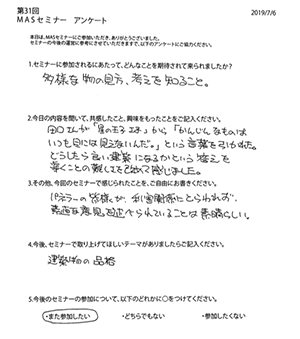 第31回
MASセミナー アンケート
2019/7/6
本日は、MASセミナーにご参加いただき、ありがとうございました。
セミナーの今後の運営に参考にさせていただきますので、以下のアンケートにご協力ください。
1.セミナーに参加されるにあたって、どんなことを期待されて来られましたか?
多様な物の見方、考えを知ること。
2.今日の内容を聞いて、共感したこと、興味をもったことをご記入ください。
田口さんが「星の王子さま」から「かんじんなものは
いつも目には見えないんだ。」という言葉を引かれた。
どうしたら良い建築になるかという答えを
導くことの難しさを改めて感じました。
3.その他、今回のセミナーで感じられたことを、ご自由にお書きください。
パネラーの皆様が、利害関係にとらわれず、
素直な意見を述べられていることは素晴らしい。
4.今後、セミナーで取り上げてほしいテーマがありましたらご記入ください。
建築物の品格
5.今後のセミナーの参加について、以下のどれかに○をつけてください。
・また参加したい ・どちらでもない ・参加したくない